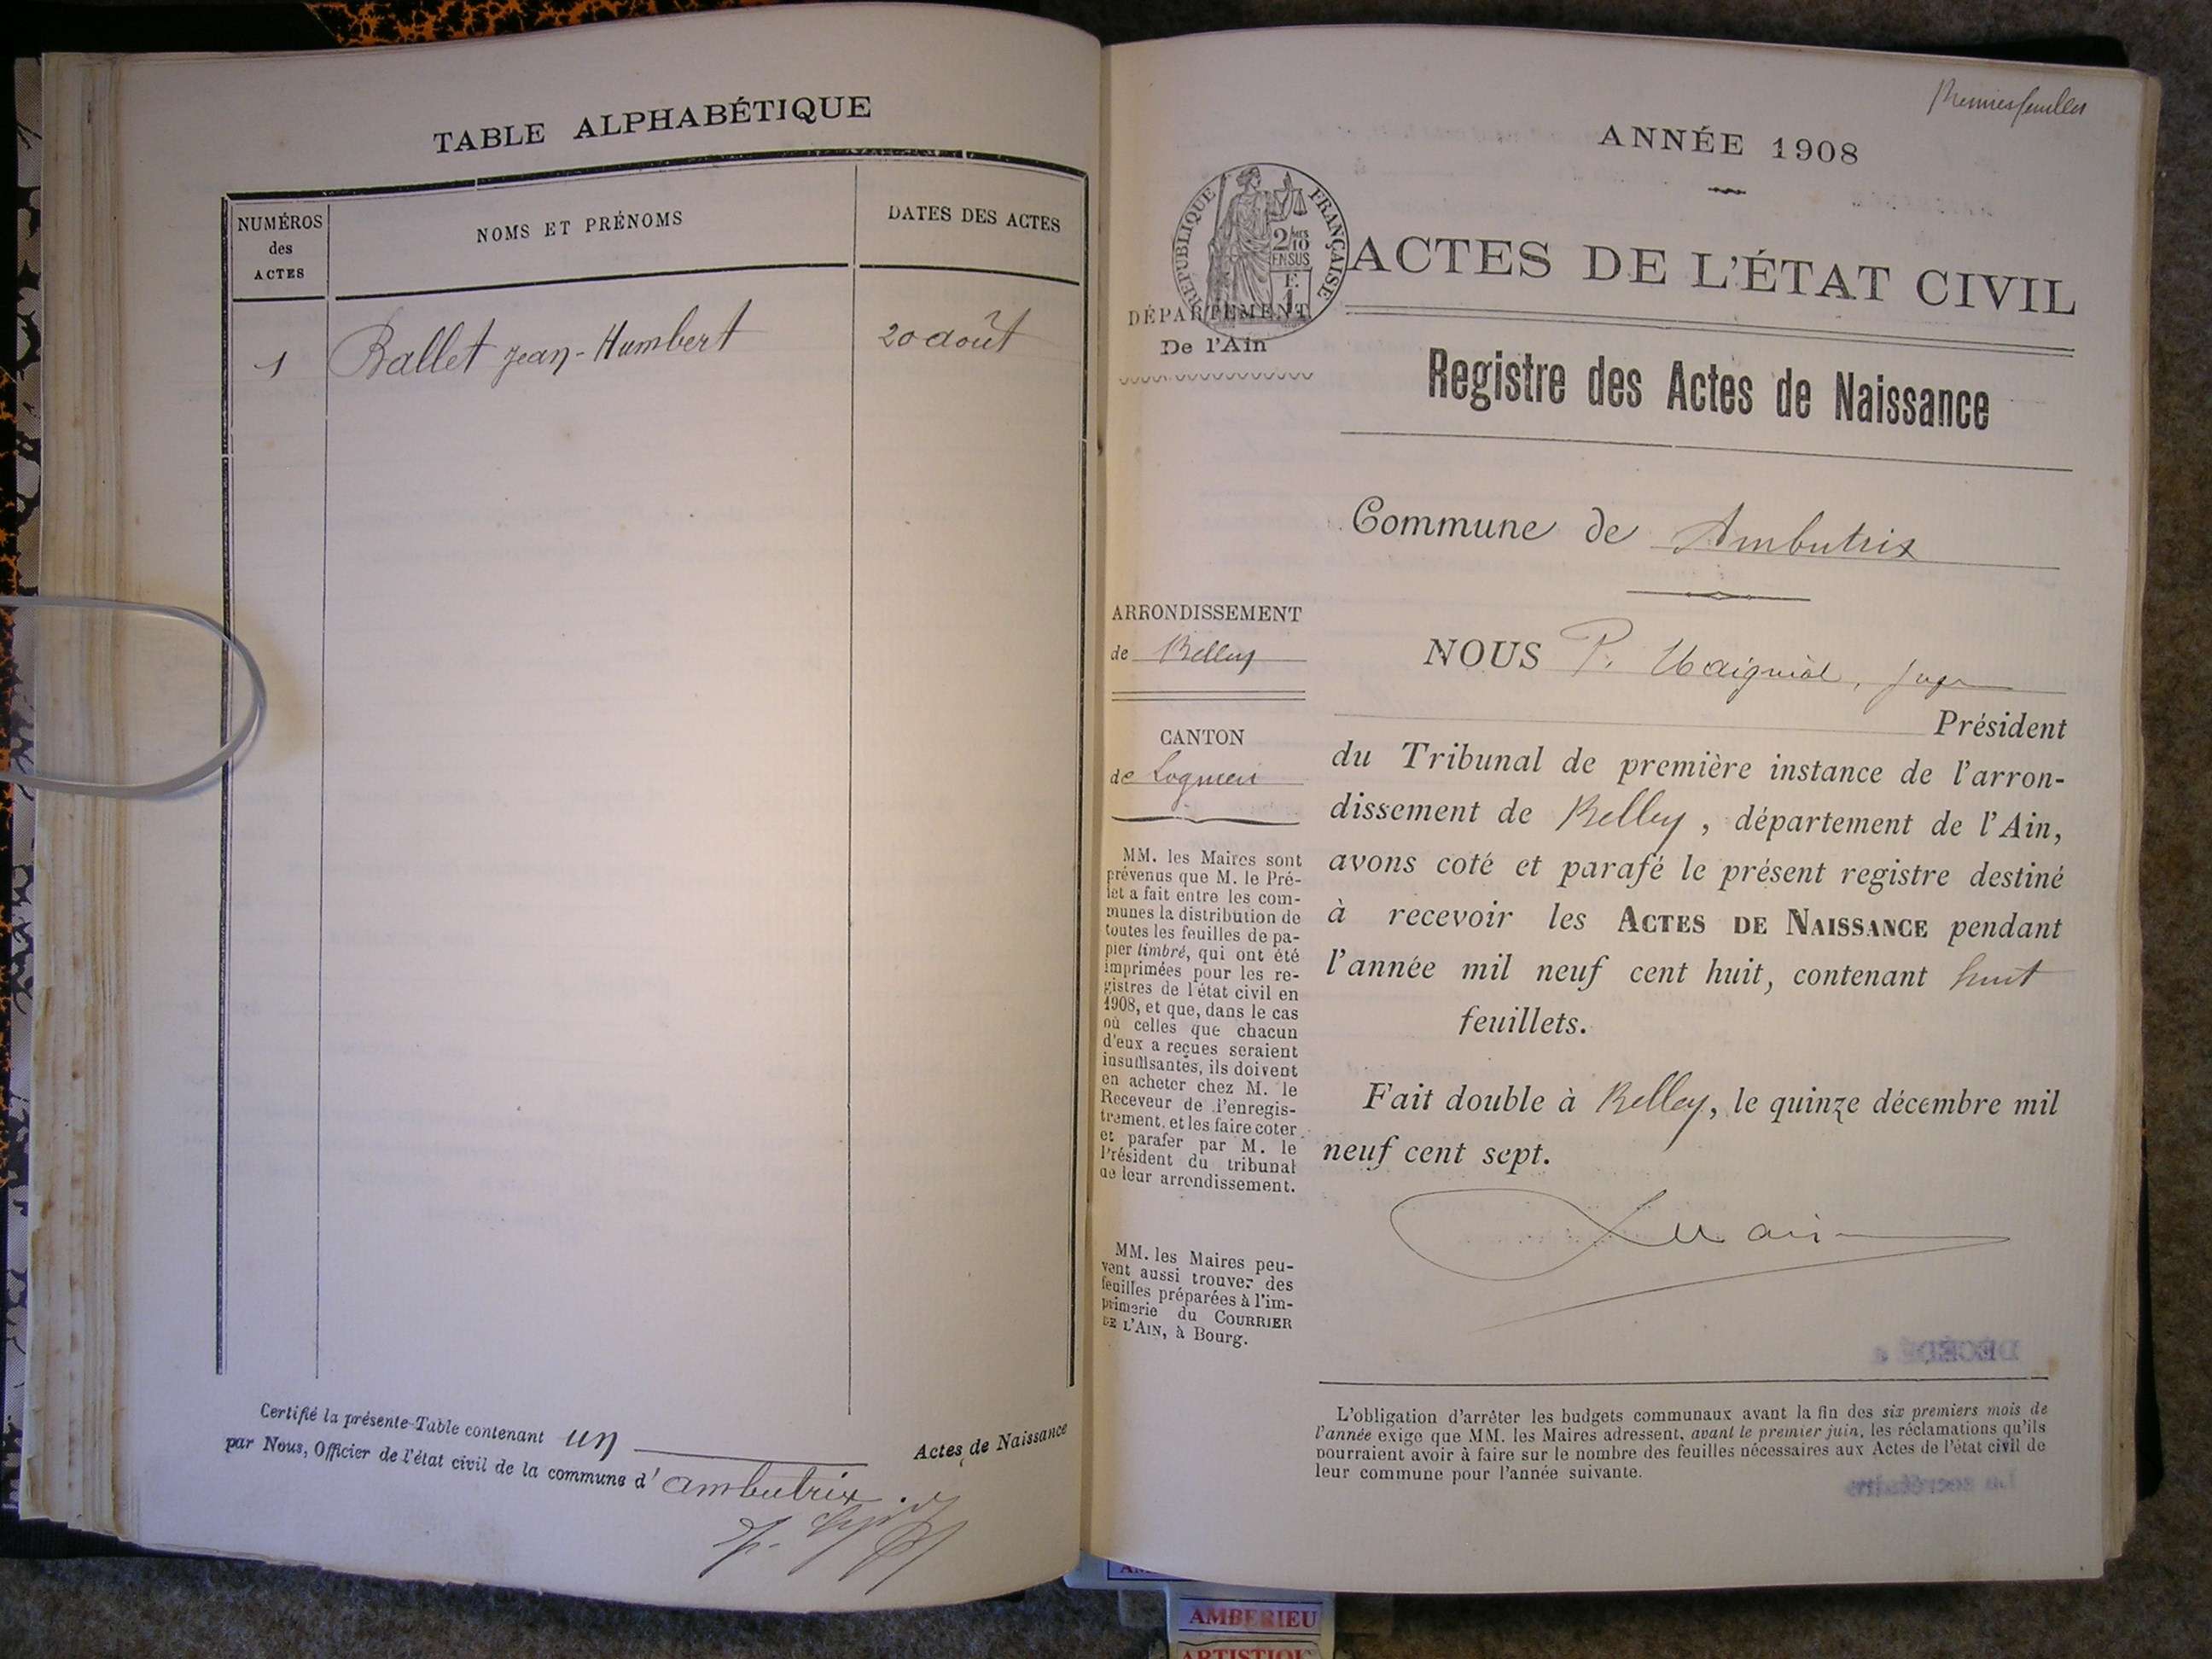 TABLE ALPHABÉTIQUE
NUMÉROS
des
ACTES
NOMS ET PRÉNOMS
DATES DES ACTES
1
Ballet Jean-Humbert
20 août
Certifié la présente Table contenant un
par Nous, Officier de l'état civil de la commune d' Ambutrix.
Actes de Naissance
ANNÉE 1908
RÉPUBLIQUE FRANÇAISE
2/10
EN SUS
ACTES DE L'ÉTAT CIVIL
DÉPARTEMENT
De l'Ain
Registre des Actes de Naissance
Commune de Ambutrix
ARRONDISSEMENT
de Belley
CANTON
de Lagnieu
MM. les Maires sont
prévenus que M. le Pré-
fet a fait entre les com-
munes la distribution de
toutes les feuilles de pa-
pier timbré, qui ont été
imprimées pour les re-
gistres de l'état civil en
1908, et que, dans le cas
où celles que chacun
d'eux a reçues seraient
insuffisantes, ils doivent
en acheter chez M. le
Receveur de l'enregis-
trement, et les faire coter
et parafer par M. le
Président du tribunal
de leur arrondissement.
MM. les Maires peu-
vent aussi trouver des
feuilles préparées à l'im-
primerie du COURRIER
DE L'AIN, à Bourg.
NOUS P.
Président
du Tribunal de première instance de l'arron-
dissement de Belley, département de l'Ain,
avons coté et parafé le présent registre destiné
à recevoir les ACTES DE NAISSANCE pendant
l'année mil neuf cent huit, contenant huit
feuillets.
Fait double à Belley, le quinze décembre mil
neuf cent sept.
DÉCÉDÉ
L'obligation d'arrêter les budgets communaux avant la fin des six premiers mois de
l'année exige que MM. les Maires adressent, avant le premier juin, les réclamations qu'ils
pourraient avoir à faire sur le nombre des feuilles nécessaires aux Actes de l'état civil de
leur commune pour l'année suivante.
AMBERIEU